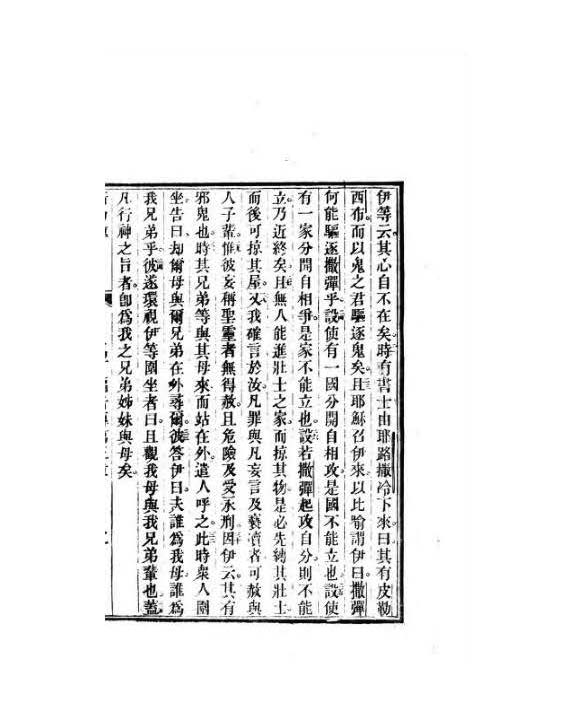 伊等云其心自不在矣時有書士由耶路撒冷下來曰其有皮勒
西布而以鬼之君驅逐鬼矣且耶穌召伊來以比喻謂伊曰撒彈
何能驅逐撒彈乎設使有一國分開自相攻是國不能立也設使
有一家分開自相爭是家不能立也設若撒彈起攻自分則不能
立乃近終矣且無人能進壯士之家而掠其物是必先縛其壯士
而後可掠其屋又我確言於汝凡罪與凡妄言及褻瀆者可赦與
人子輩惟彼妄稱聖靈者無得赦且危險及受永刑因伊云其有
邪鬼也時其兄弟等與其母來而站在外遣人呼之此時衆人圍
坐告曰却爾母與爾兄弟在外尋爾彼答伊曰夫誰為我母誰為
我兄弟乎彼遂環視伊等圍坐者曰且觀我母與我兄弟輩也蓋
凡行神之旨者卽為我之兄弟姊妹與母矣